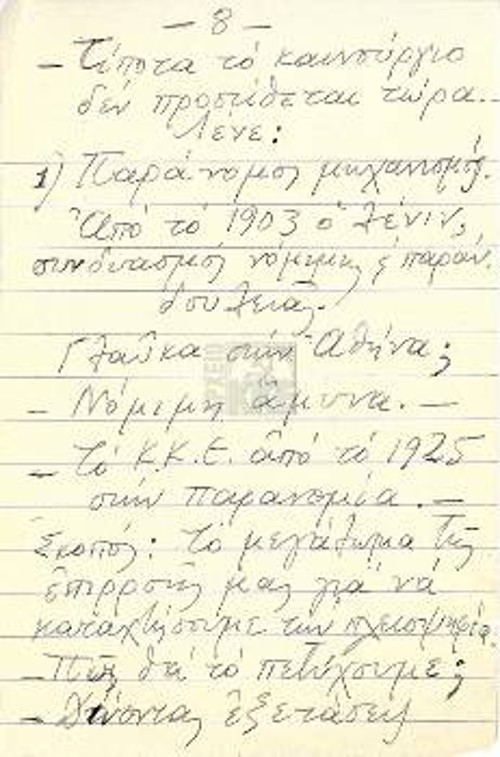 — 8 —
— Τίποτα τό καινούργιο
δέν προστίθεται τώρα..
Λένε:
1) Παράνομος μηχανισμός.
Ἀπό τό 1903 ὁ Λένιν,
συνδυασμός νόμιμης ς παράν.
δουλειᾶς.
Γλαῦκα στήν Ἀθήνα;
— Νόμιμη ἄμυνα. —
— Τό Κ.Κ.Ε. ἀπό τό 1925
στήν παρανομία. —
Σκοπός: Τό μεγάλωμα τῆς
ἐπιρροῆς μας γιά νά
καταχτήσουμε τήν πλειοψηφία.
— Πῶς θά τό πετύχουμε;
— Δίνοντας ἐξετάσεις